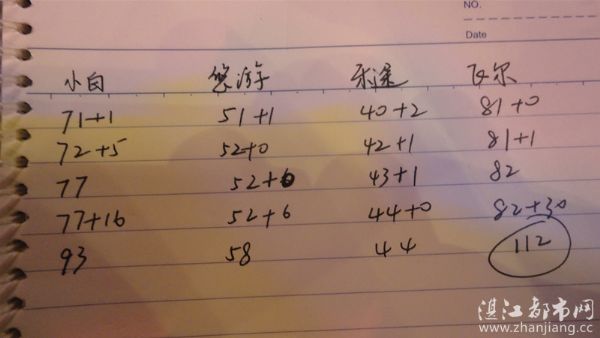 NO.
Date
小白 悠游 乐途 飞尔
71+1 51+1 40+2 81+0
72+5 52+0 42+1 81+1
77 52+0 43+1 82
77+16 52+6 44+0 82+30
93 58 44 112
湛江都市网
www.zhanjiang.cc